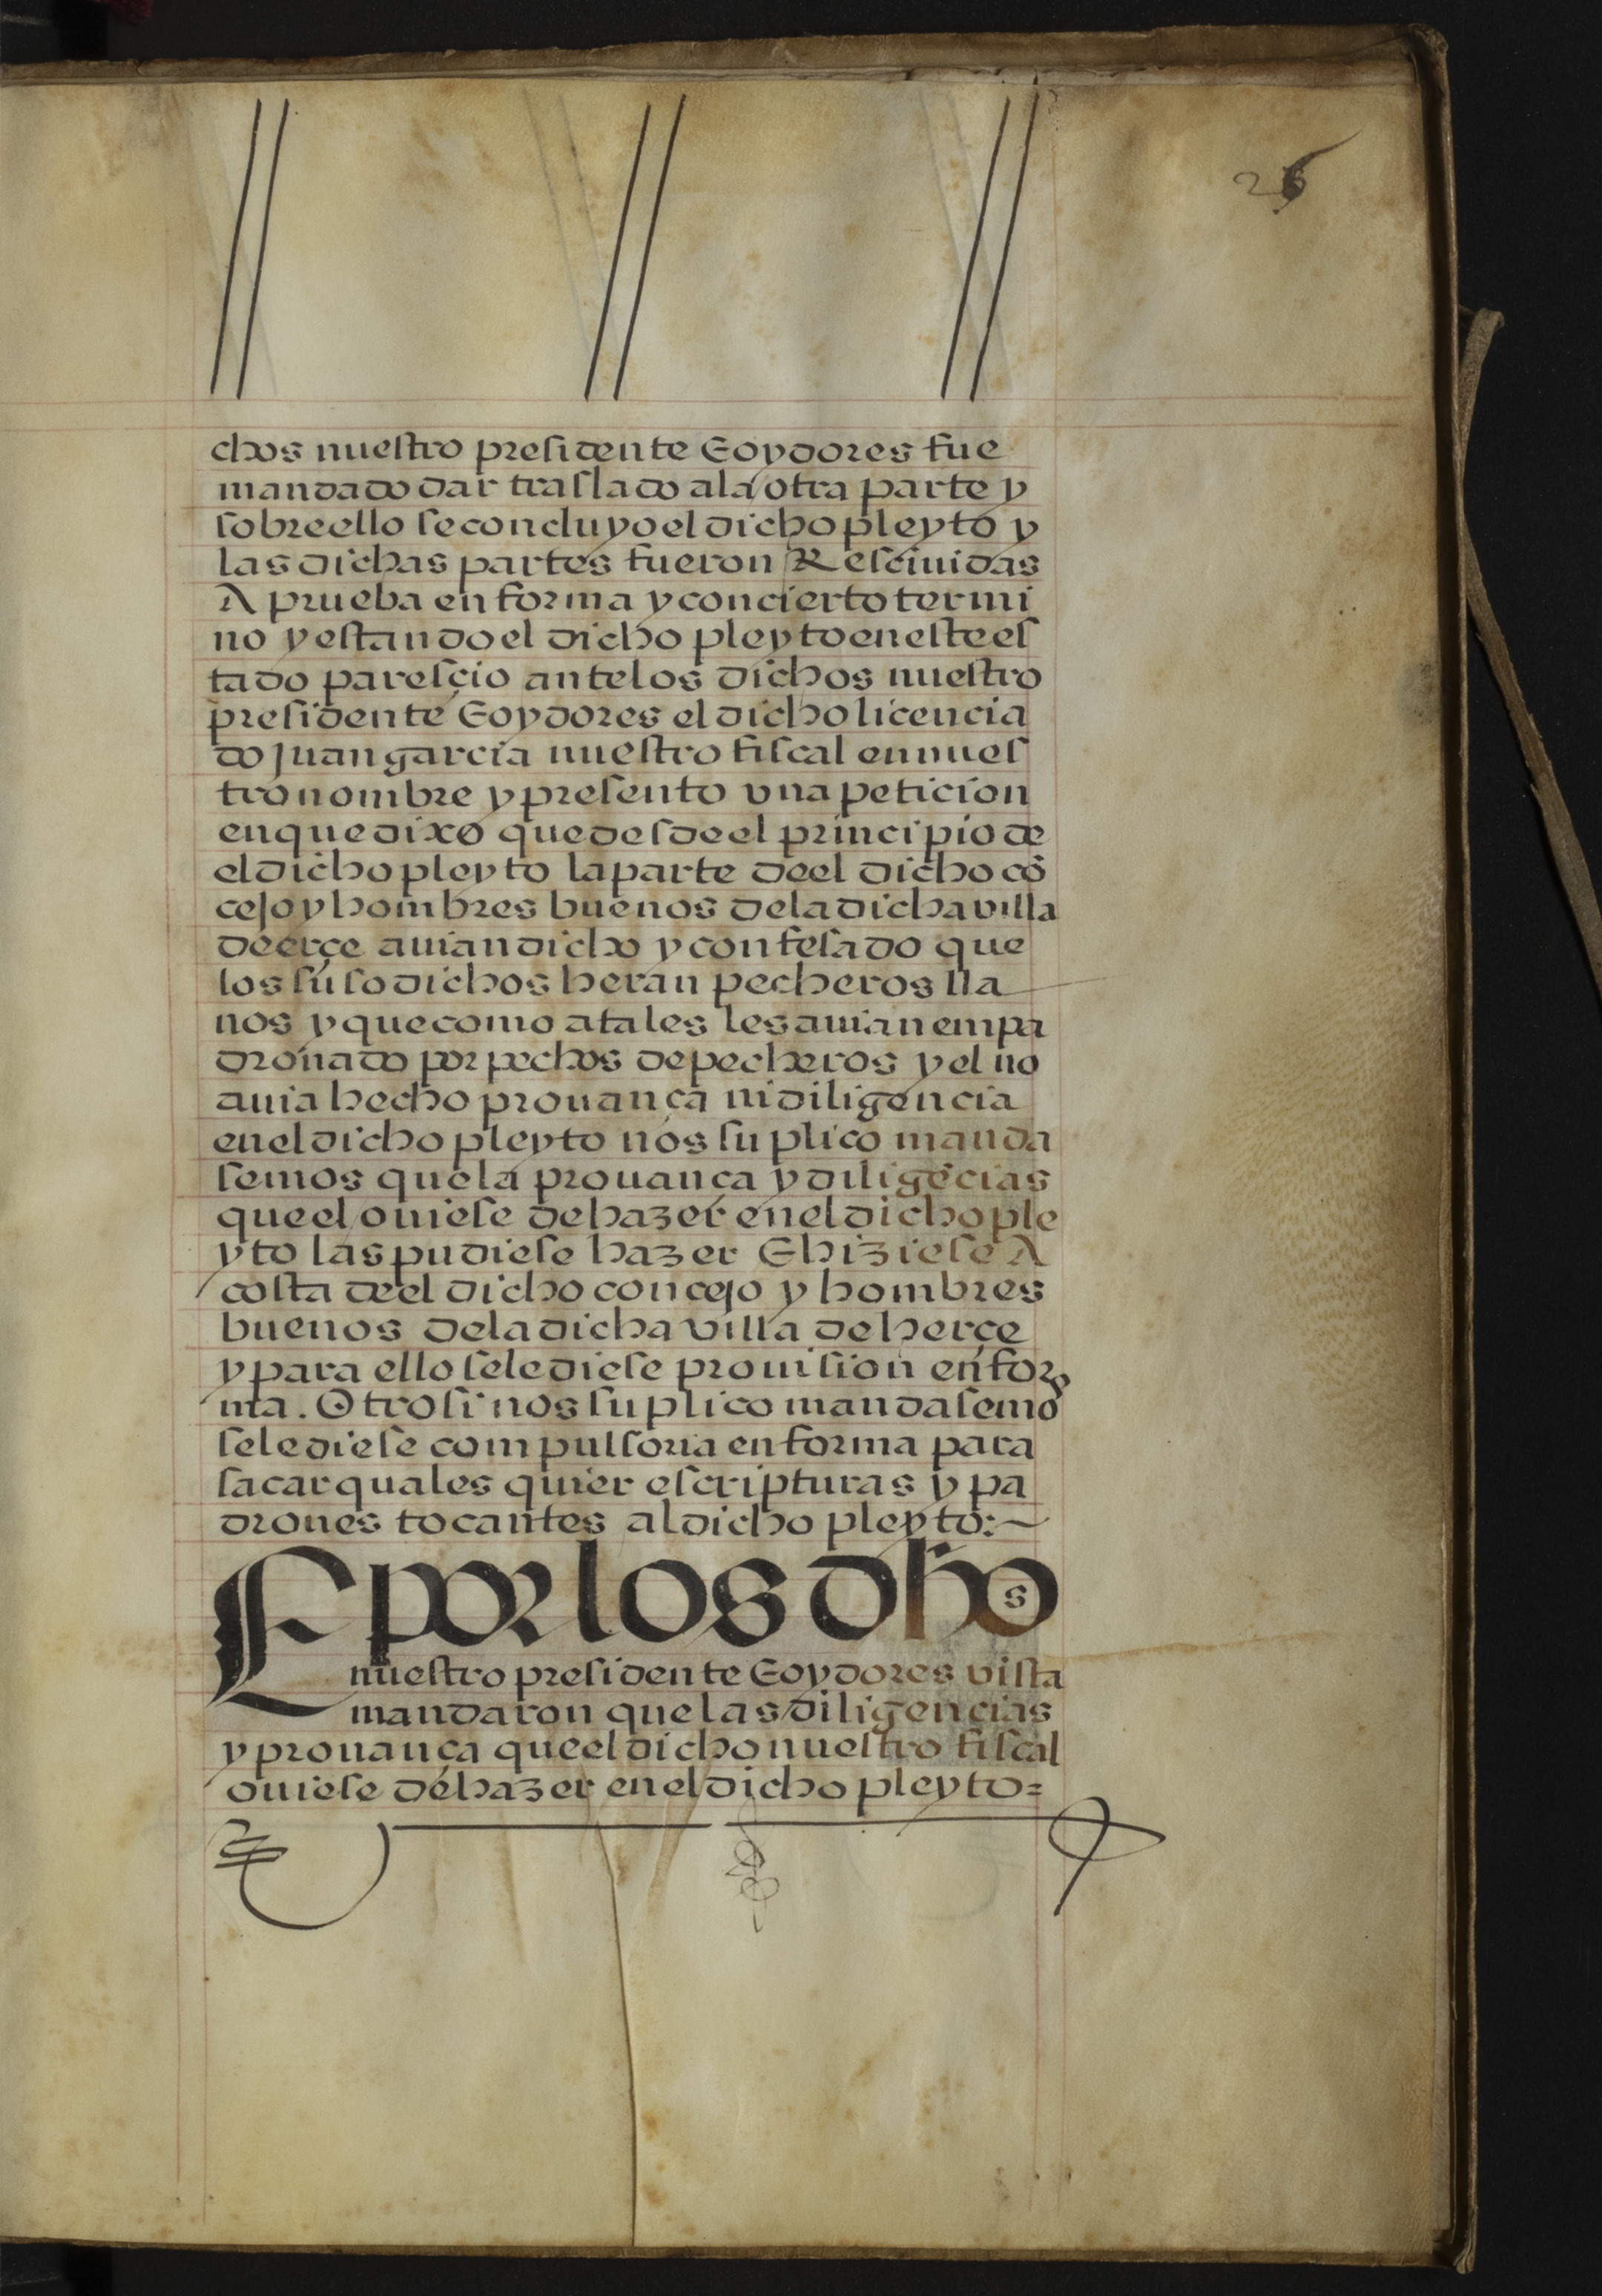 26
chos nuestro presidente Eoydores fue
mandado dar traslado ala otra parte y
sobreello seconcluyo el dicho pleyto y
las dichas partes fueron Resciuidas
A prueba en forma y concierto termi
no y estando el dicho pleyto en este es
tado paresçio ante los dichos nuestro
presidente Eoydores el dicho licencia
do Juan garcia nuestro fiscal en nues
tro nombre y presento vna peticion
en que dixo que desde el principio de
el dicho pleyto la parte deel dicho cõ
cejo y hombres buenos dela dicha villa
de erçe auian dicho y confesado que
los suso dichos heran pecheros lla
nos y que como a tales les auian empa
dronado por pechos de pecheros y el no
auia hecho prouança ni diligencia
en el dicho pleyto nos suplico manda
semos que la prouança y diligẽcias
que el ouiese de hazer en el dicho ple
yto las pudiese hazer E hiziese A
costa deel dicho concejo y hombres
buenos dela dicha villa de herçe
y para ello se le diese prouision en for
ma. Otrosi nos suplico mandasemos
se le diese compulsoria en forma para
sacar quales quier escripturas y pa
drones tocantes al dicho pleyto:~
E por los dhos
nuestro presidente Eoydores vista
mandaron que las diligencias
y prouança que el dicho nuestro fiscal
ouiese de hazer en el dicho pleyto=